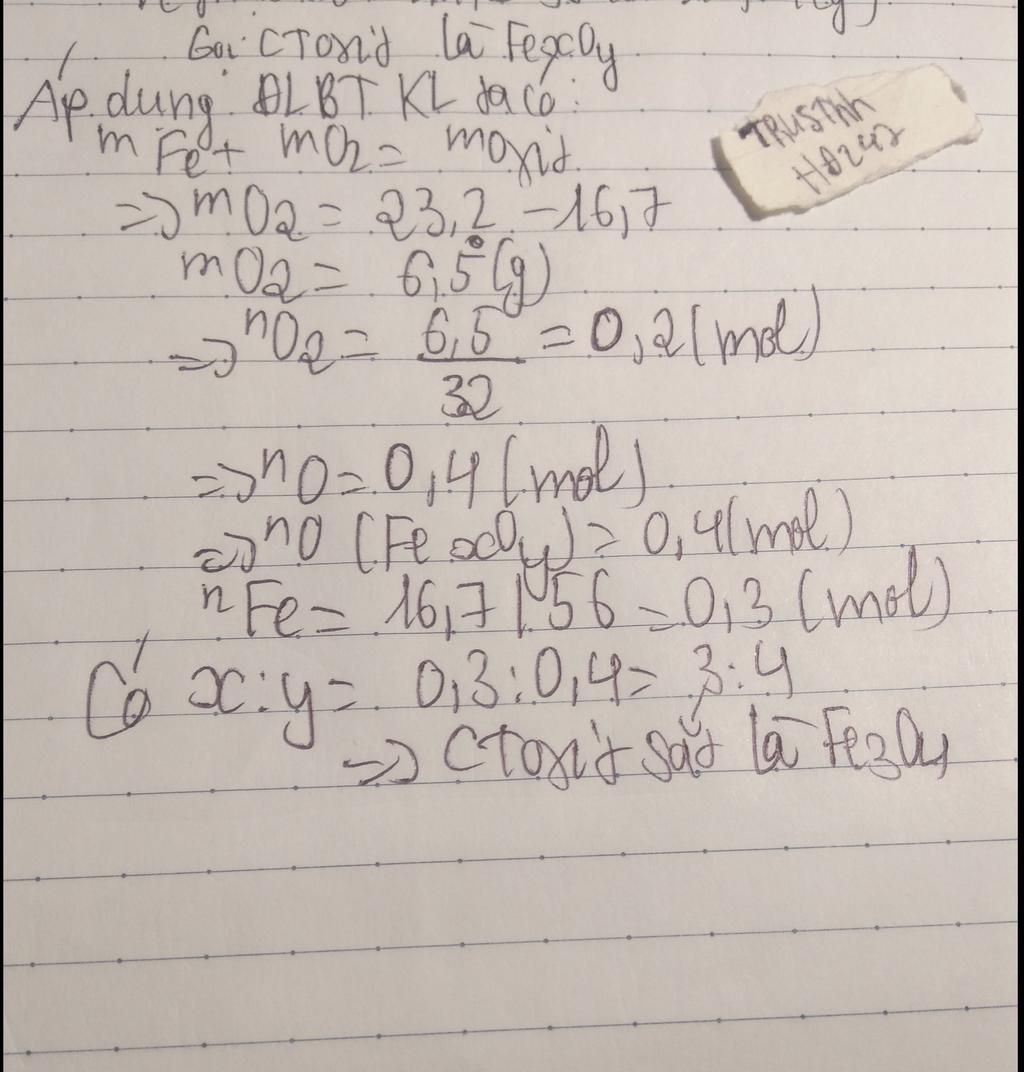 Gọi CT oxit là FexOy
Áp dụng ĐLBT KL ta có:
mFe + mO2 = moxit
=> mO2 = 23,2 - 16,7
mO2 = 6,5 (g)
=> nO2 = 6,5/32 = 0,2 (mol)
=> nO = 0,4 (mol)
=> nO (FexOy) = 0,4 (mol)
nFe = 16,7/56 = 0,3 (mol)
Có x:y = 0,3:0,4 = 3:4
=> CT oxit sắt là Fe3O4
TRUSTNN
HD247